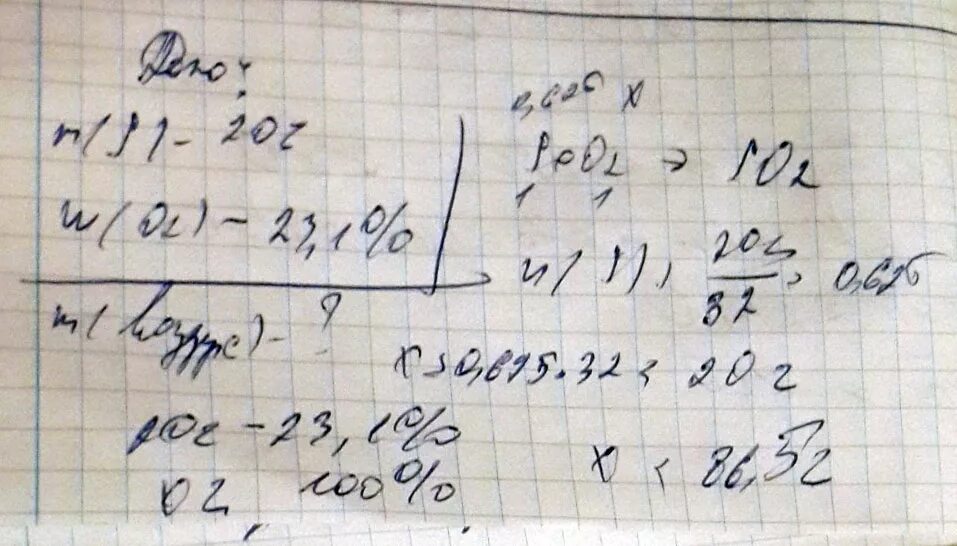 Дано:
m(S) - 20г
w(O2) - 23,1%
m(воздух) - ?
0,625 x
S+O2 → SO2
1 1
n(S) = 20г/32 = 0,625
x = 0,625·32 = 20г
20г - 23,1%
xг, 100%
x = 86,5г